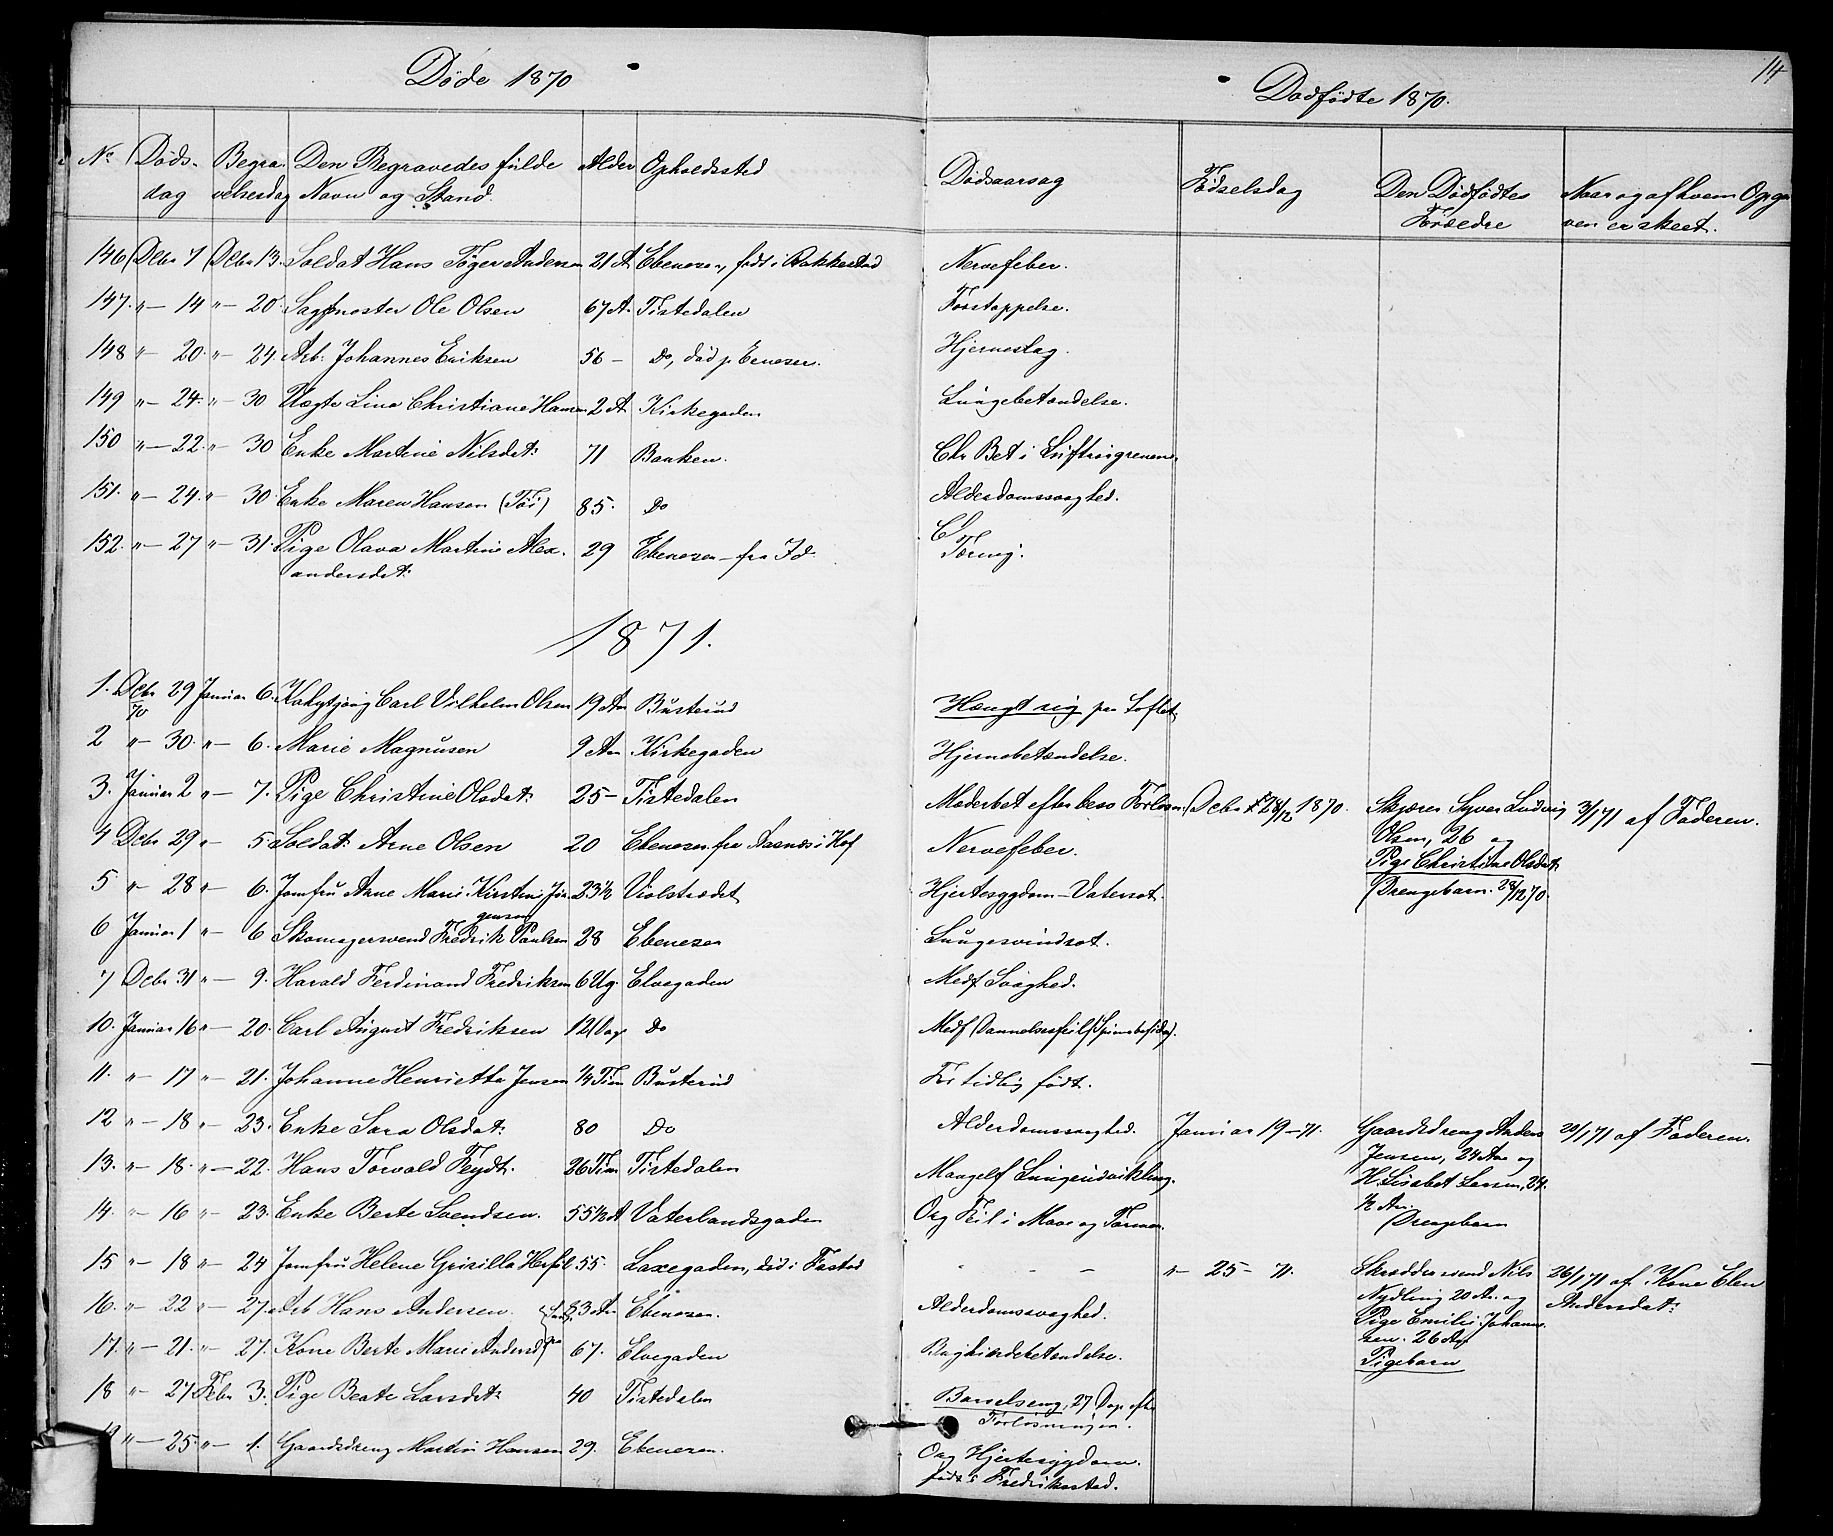 Døde 1870
Dødfødte 1870.
14
No Døds- Begra- Den Begravedes fulde Alder Opholdssted
dag velsesdag Navn og Stand.
Dødsaarsag Fødselsdag Den Dødfødtes Naar og af hvem Opga
Forældre ven er skeet.
146 Dcbr 7 Dcbr 13. Soldat Hans Tøger Andersen 21 A Ebenezer, født i Rakkestad Nervefeber.
147. " — 14 " — 20. Sagmester Ole Olsen 67 A. Tistedalen Forstoppelse.
148 " — 20. " — 24. Arb. Johannes Eriksen 56 — Do, død p. Ebenezer. Hjerneslag.
149 " — 24. " — 30 Uægte Lina Christiane Hansen 2 A Kirkegaden Lungebetændelse.
150 " — 22. " — 30 Enke Martine Nilsdat: 71 Banken. Chr Bet i Luftrørgrenene
151. " — 24. " — 30. Enke Maren Hansen 85. Do Alderdomssvaghed.
152. " — 27 " — 31. Pige Olava Martine Alex- 29 Ebenezer — fra Id. Tæring.
andersdat:
1871.
1. Dcbr 29 Januar 6. Carl Vilhelm Olsen 19 Aar Busterud Hængt sig paa Loftet
70
2 " — 30. " — 6. Marie Magnusen 9 Aar Kirkegaden Hjernebetændelse.
3. Januar 2 " — 7. Pige Christine Olsdat: 25 — Tistedalen Moderbet efter hess Forløsn. Dcbr 28/12 1870. Skjærer Syver Ludvig 3/1 71 af Faderen.
Olsen, 26 og
4 Dcbr 29 " — 5 Soldat Arne Olsen 20 Ebenezer fra Aasnæs i Hof Nervefeber.
Pige Christine Olsdat:
5 " — 28 " — 6. Jomfru Anne Marie Kirstine Jør- 23½ Violstrædet Hjertesygdom — Vatersot. Drengebarn. 28/12 70.
gensen
6 Januar 1 " — 6 Skomagersvend Fredrik Paulsen 28 Ebenezer Lungesvindsot.
7 Dcbr 31 " — 9. Harald Ferdinand Fredriksen 6 Ug. Elvegaden Medf Svaghed.
10. Januar 16 " — 20. Carl August Fredriksen 12 Dag Do Medf Dannelsesfeil
11. " — 17 " — 21. Johanne Henriette Jensen ¼ Tim Busterud For tidlig født.
12 " — 18 " — 23. Enke Sara Olsdat: 80 Do Alderdomssvaghed. Januar 19 — 71. Gaardsdreng Anders 20/1 71 af Faderen.
Jensen, 24 Aar og
13. " — 18. " — 22. Hans Torvald Feydt. 26 Tim Tistedalen Mangelf Lungeudvikling.
H. Lisabet Larsen, 24
½ Aar.
14. " — 16 " — 23. Enke Berte Svendsen. 55½ A Vaterlandsgaden Org Feil i Mave og Tarmer.
Drengebarn
15 " — 18 " — 24 Jomfru Helene Grisilla 55. Laxegaden, død i — — — " — 25 — 71. Skræddersvend Nils 26/1 71 af Kone Elen
Nydling 20 Aar og Andersdat:
16. " — 22 " — 27. Arb Hans Andersen. 83 Aar Ebenezer. Alderdomssvaghed.
Pige Emilie Johann-
sen. 26 Aar
17. " — 21. " — 27. Kone Berte Marie Andersd 67. Elvegaden Bughindebetændelse.
Pigebarn
18 " — 27 Febr 3. Pige Beate Larsdat: 40 Tistedalen Barselseng, 27 Dage efter
Forløsningen.
19 " — 25 " — 1. Gaardsdreng Martin Hansen 29. Ebenezer. Org Hjertesygdom.
født i Fredrikstad.